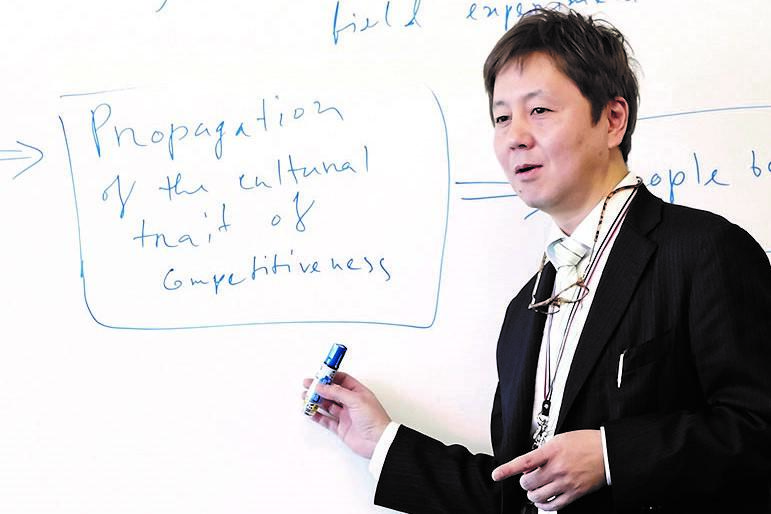 field
Propagation
of the cultural
trait of
competitiveness